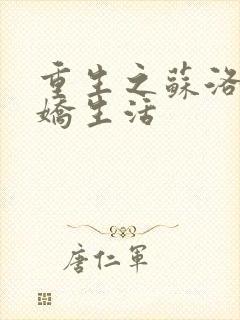 重生之蘇洛
嬌生活
唐仁軍